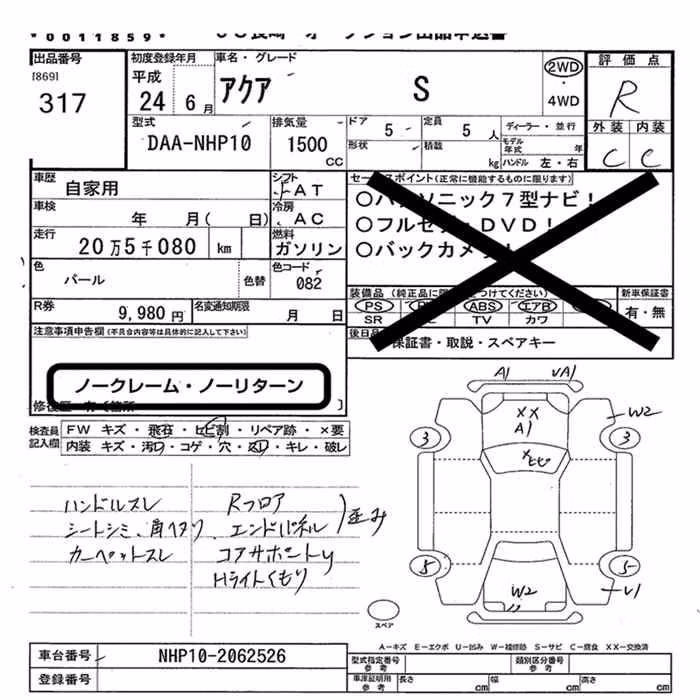 *0011859*
出品番号
[869]
317
初度登録年月
平成
24 6月
車名・グレード
アクア S
2WD
・
4WD
評価点
R
外装 内装
C C
型式
DAA-NHP10
排気量
1500
CC
ドア
5
定員
5 人
形状
積載
kg
ディーラー・並行
モデル年式 年
ハンドル 左・右
車歴
自家用
シフト
AT
車検
年 月( 日)
冷房
AC
走行
20万5千080 km
燃料
ガソリン
色
パール
色替
色コード
082
R券
9,980円
名変通知期限
月 日
セールスポイント(正常に機能するものに限ります)
○パナソニック7型ナビ!
○フルセグ・DVD!
○バックカメラ!
装備品
PS ABS エアB
SR TV カワ
新車保証書
有・無
後日品
保証書・取説・スペアキー
注意事項申告欄(不具合内容等は具体的に記入して下さい)
ノークレーム・ノーリターン
検査員記入欄
FW キズ・飛石・ヒビ割・リペア跡・×要
内装 キズ・汚レ・コゲ・穴・スレ・キレ・破レ
ハンドルスレ
シートシミ、角ヘタリ
カーペットスレ
Rフロア
エンドパネル
コアサポートU
歪み
Hライトくもり
A1
UA1
XX
A1
×ヒビ
W2
3
3
5
5
W2
U1
スペア
A−キズ E−エクボ U−凹み W−補修跡 S−サビ C−腐食 XX−交換済
車台番号
NHP10-2062526
登録番号
型式指定番号
参考
類別区分番号
参考
車庫証明用
参考
長さ cm
幅 cm
高さ cm